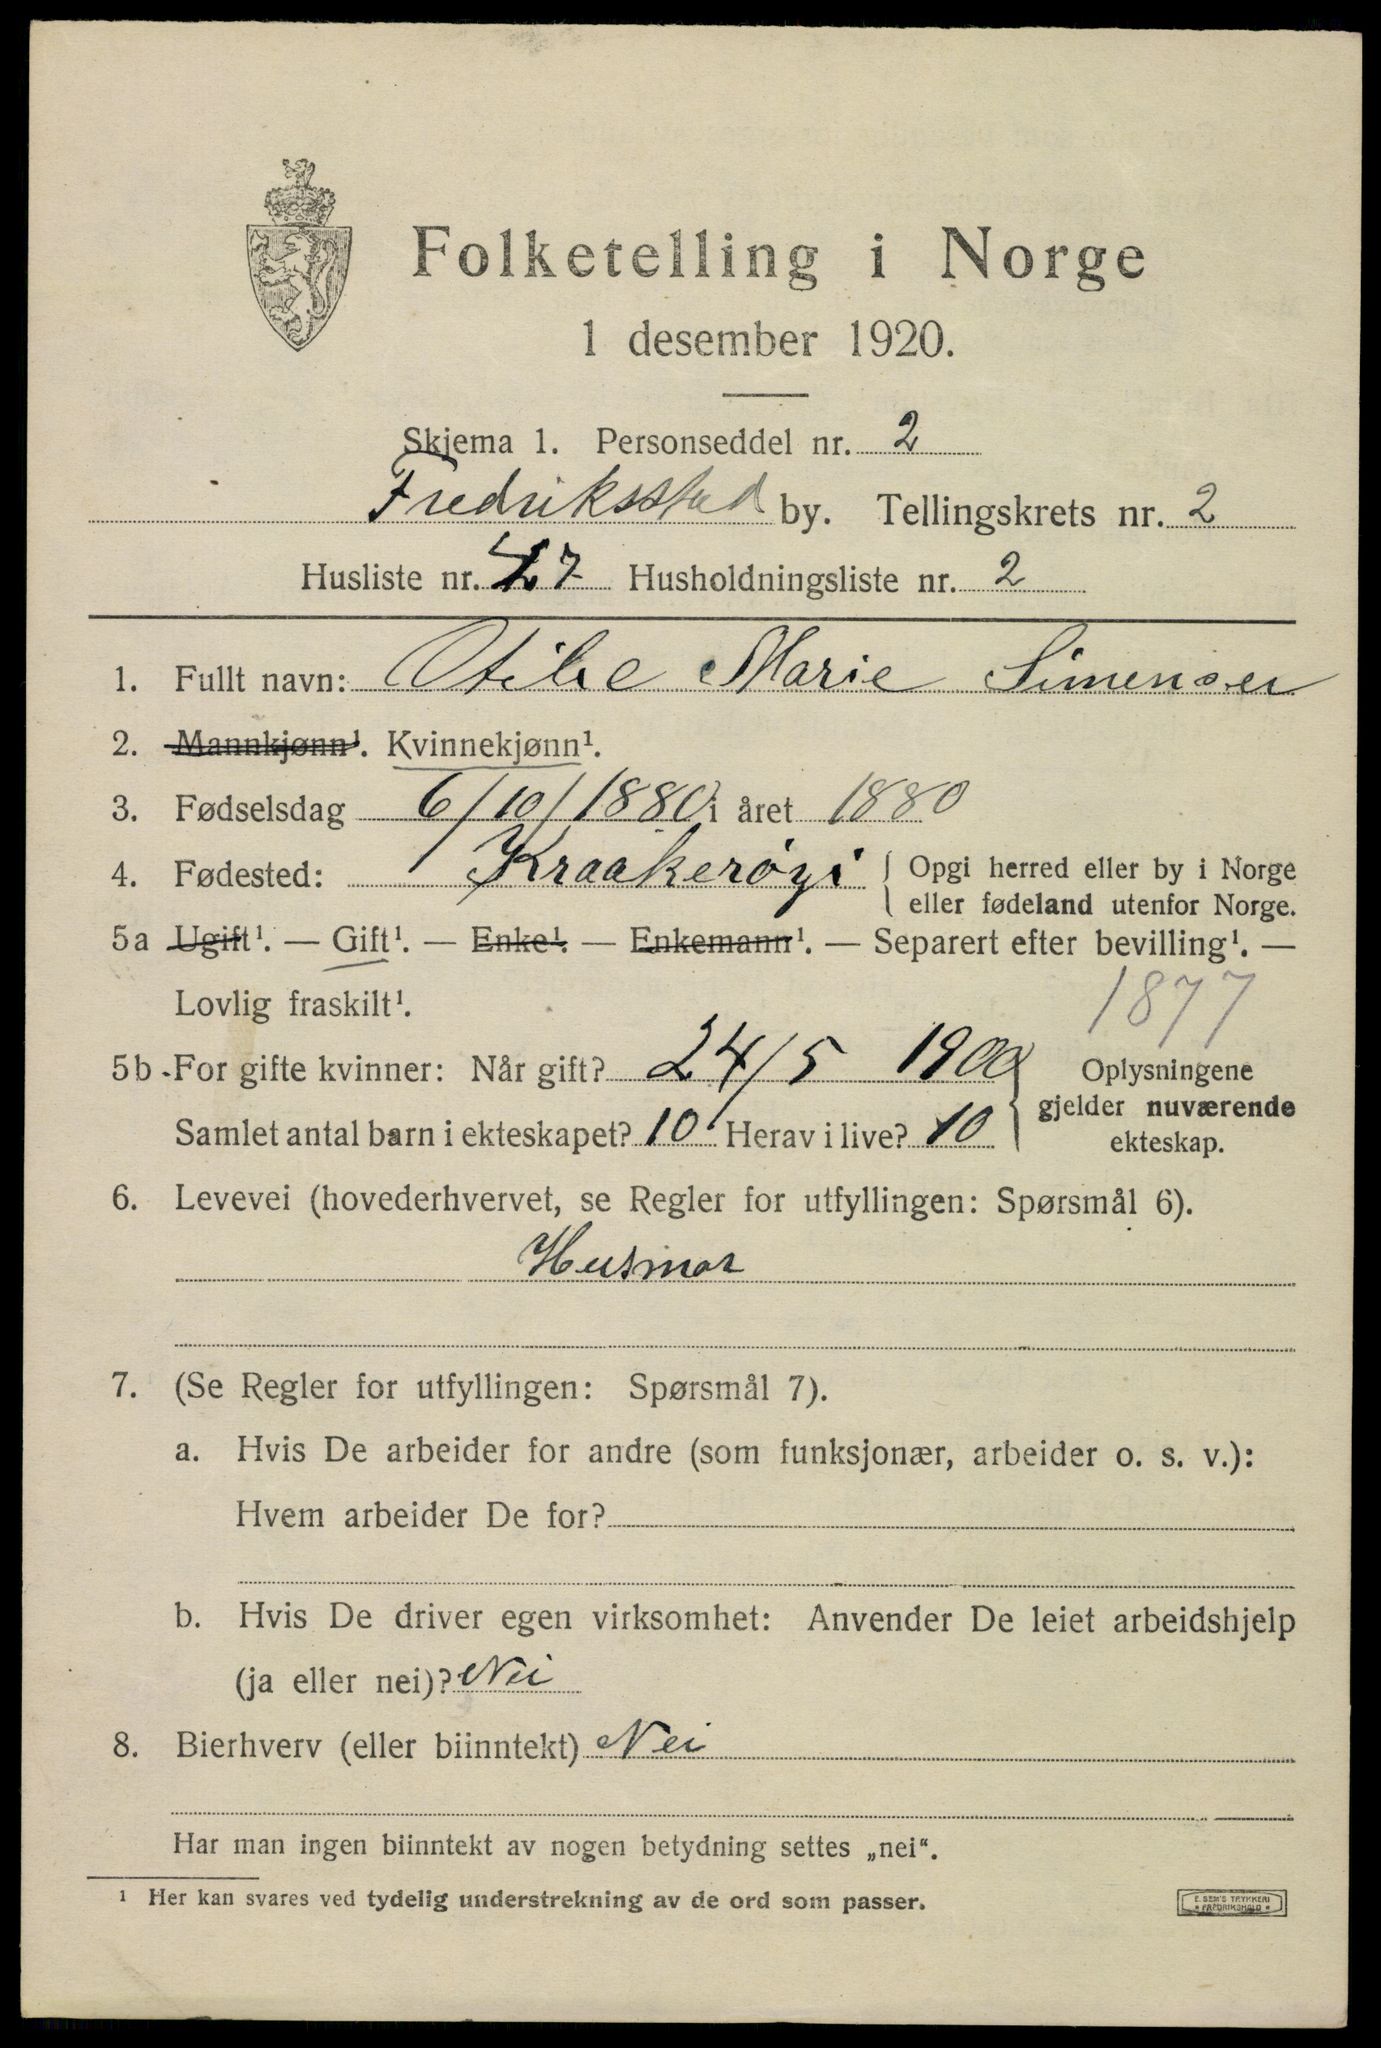 Folketelling i Norge
1 desember 1920.
Skjema 1. Personseddel nr. 2
Fredriksstad by. Tellingskrets nr. 2
Husliste nr. 27 Husholdningsliste nr. 2
1. Fullt navn: Otilie Marie Simensen
2. Mannkjønn¹. Kvinnekjønn¹.
3. Fødselsdag 6/10/1880 i året 1880
4. Fødested: Kraakerøyi { Opgi herred eller by i Norge
eller fødeland utenfor Norge.
5a Ugift¹. — Gift¹. — Enke¹. — Enkemann¹. — Separert efter bevilling¹. —
Lovlig fraskilt¹. 1877
5b For gifte kvinner: Når gift? 24/5 1900 } Oplysningene
gjelder nuværende
Samlet antal barn i ekteskapet? 10 Herav i live? 10
ekteskap.
6. Levevei (hovederhvervet, se Regler for utfyllingen: Spørsmål 6).
Husmor
7. (Se Regler for utfyllingen: Spørsmål 7).
a. Hvis De arbeider for andre (som funksjonær, arbeider o. s. v.):
Hvem arbeider De for?
b. Hvis De driver egen virksomhet: Anvender De leiet arbeidshjelp
(ja eller nei)? Nei
8. Bierhverv (eller biinntekt) Nei
Har man ingen biinntekt av nogen betydning settes „nei“.
¹ Her kan svares ved tydelig understrekning av de ord som passer.
E. SEM'S TRYKKERI
* FREDRIKSHALD *